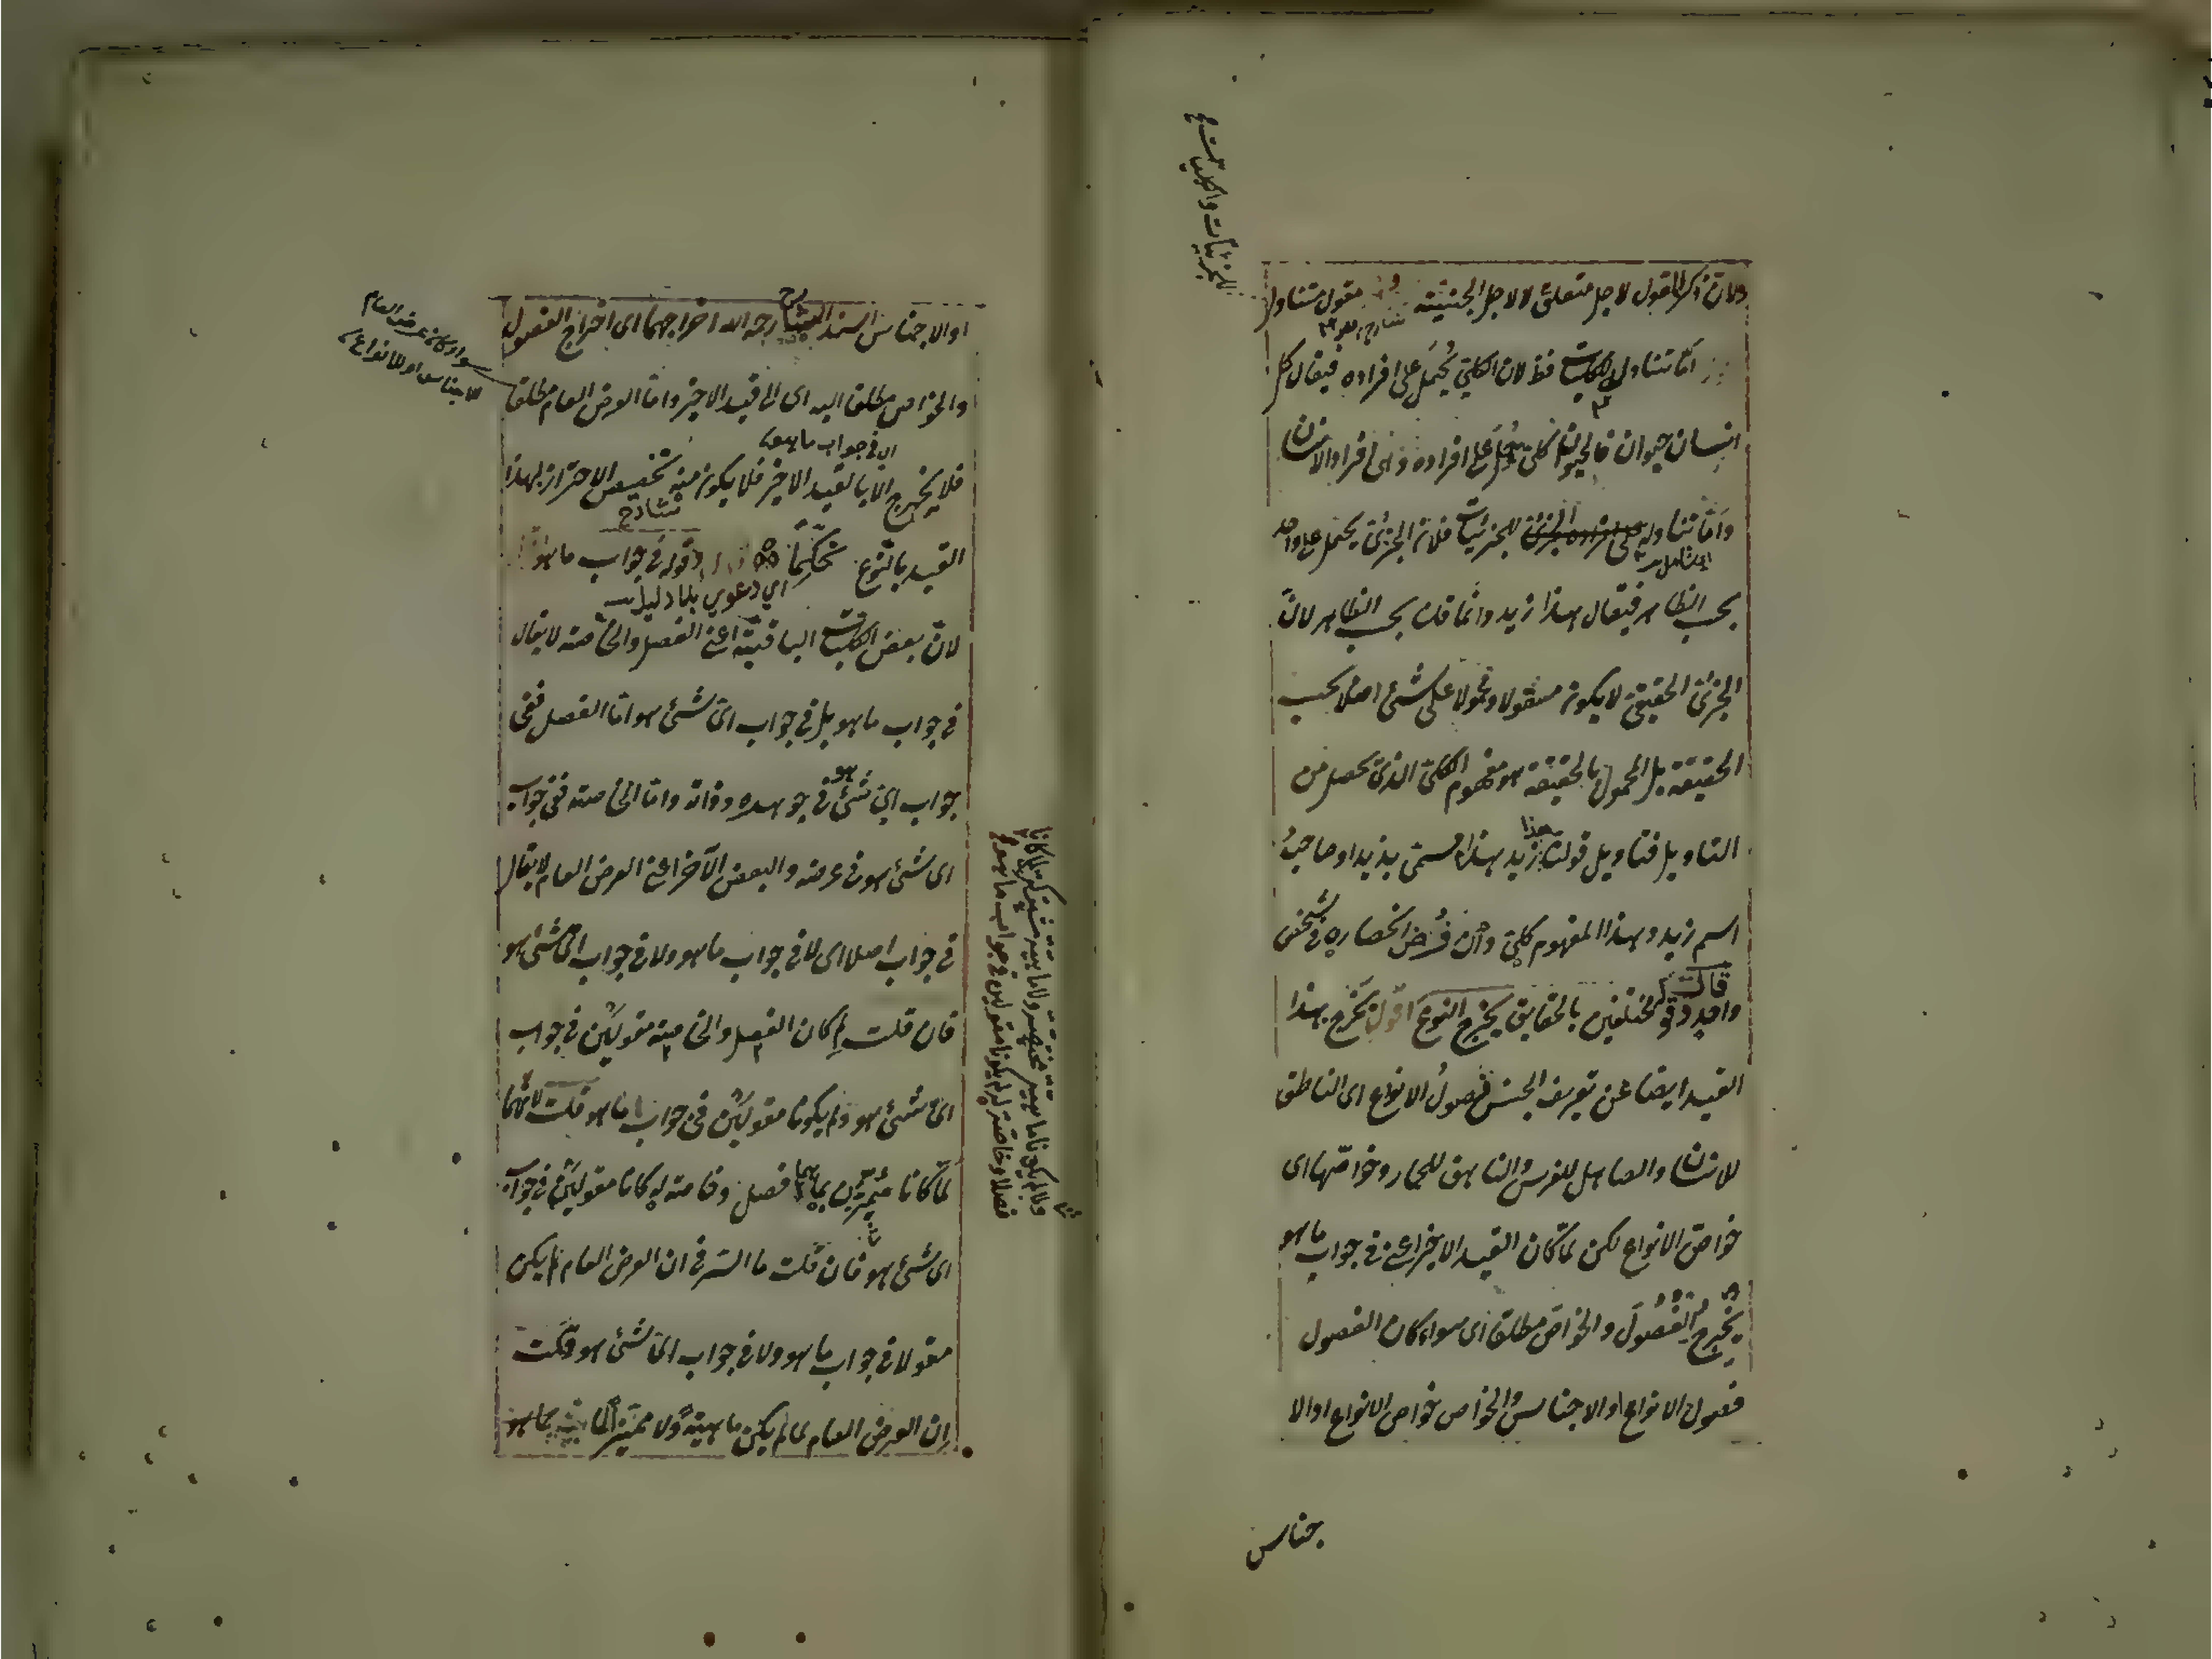 ولان ذكر المقول لاجل متعلق لا لاجل الجنسية مقول متناول
للجزئيات والكليات
اما تناول الكليات فظ لان الكلي يُحمَل على افراده فيقال كل
انسان حيوان فالحيوان كلي يُحمَل على افراده وهى افراد الانسان
واما تناوله للجزئيات فلان الجزئى يحمل على واحد
بحسب الظاهر فيقال هذا زيد وانما قلت بحسب الظاهر لانّ
الجزئى الحقيقى لا يكون مقولا ومحمولا على شئ اصلا بحسب
الحقيقة بل المحمول بالحقيقة هو مفهوم الكلى الذى يحصل من
التاويل فتاويل قولنا هذا زيد هذا مسمى بزيد او صاحبُ
اسم زيد وهذا المفهوم كلى وان فُرض انحصاره فى شخص
واحد قال وقوله مختلفين بالحقايق يخرج النوع اقول يخرج بهذا
القيد ايضا عن تعريف الجنس فصولُ الانواع اى الناطق
للانسان والصاهل للفرس والناهق للحمار وخواصّها اى
خواصّ الانواع لكن لمّا كان القيد الاخير اعنى فى جواب ما هو
يُخرج الفُصُولَ والخواصّ مطلقا اى سواء كان الفصول
فصول الانواع او الاجناس والخواص خواص الانواع او الا
جناس
او الاجناس اسند الشارح رحمه الله اخراجهما اى اخراج الفصول
والخواص مطلقا اليه اى الى قيد الاخير واما العرض العام مطلقا
سواء كان عرض العام
للاجناس او للانواع
اى فى جواب ما هو
فلا يخرج الا بالقيد الاخير فلا يكون منه تخصيص الاحتراز بهذا
القيد بالنوع تحكمًا قوله فى جواب ما هو
اي دعوي بلا دليل
لانّ بعض الكليات الباقية اعنى الفصل والخاصة لا يقال
فى جواب ما هو بل فى جواب اىّ شئ هو اما الفصل ففى
جواب اىّ شئ هو فى جوهره وذاته واما الخاصة ففى جواب
اى شئ هو فى عرضه والبعض الآخر اعنى العرض العام لا يقال
فى جواب اصلا اى لا فى جواب ما هو ولا فى جواب اىّ شئ هو
فان قلت لِم كان الفصل والخاصة مقولَين فى جواب
اىّ شئ هو ولم يكونا مقولَين فى جواب ما هو قلت لانّهما
لمّا كانا مميّزين لما هما فصل وخاصة له كانا مقولَين فى جواب
اى شئ هو فان قلت ما السّر فى ان العرض العام لم يكن
مقولا فى جواب ما هو ولا فى جواب اىّ شئ هو قلت
ان العرض العام لما لم يكن ماهيةً ولا مميّزًا لما هو
فصلا وخاصة له لم يكونا مقولين فى جواب ما هو